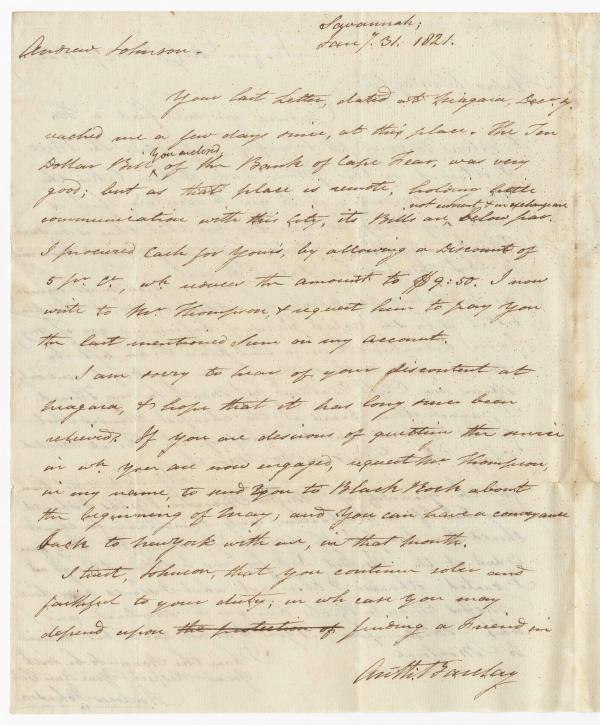 Savannah;
Jany. 31. 1821.
Andrew Johnson.
Your last Letter, dated at Niagara, Decr. 7.
reached me a few days since, at this place. The Ten
Dollar Bill you enclosed, of the Bank of Cape Fear, was very
good; but as that place is remote, holding little
communication with this City, its Bills are not current, & in exchange are below par.
I procured Cash for Yours, by allowing a Discount of
5 pr. Ct., wh. reduces the amount to $9:50. I now
write to Mr. Thompson, & request him to pay you
the last mentioned Sum on my account.
I am sorry to hear of your discontent at
Niagara, & hope that it has long since been
relieved. If you are desirous of quitting the service
in wh. you are now engaged, request Mr. Thompson,
in my name, to send you to Black Rock about
the beginning of May; and you can have a conveyance
back to New York with me, in that month.
I trust, Johnson, that you continue sober and
faithful to your duty; in wh. case you may
depend upon the protection of finding a Friend in
Anth. Barclay